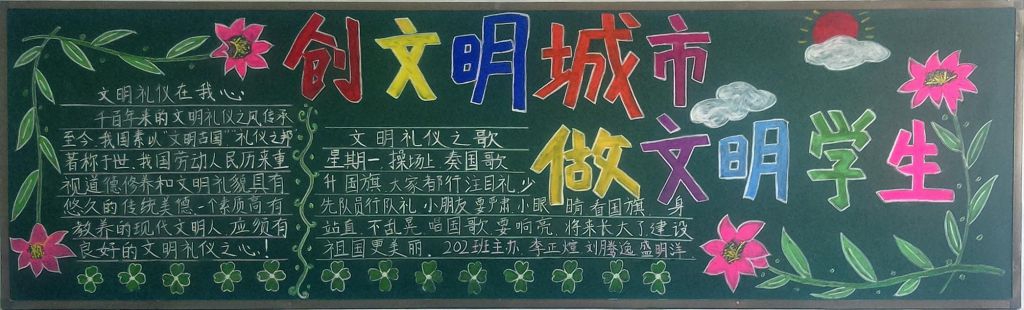 创文明城市
做文明学生
文明礼仪在我心
千百年来的文明礼仪之风传承
至今、我国素以"文明古国""礼仪之邦
著称于世、我国劳动人民历来重
视道德修养和文明礼貌具有
悠久的传统美德一个素质高有
教养的现代文明人应须有
良好的文明礼仪之心!
文明礼仪之歌
星期一 操场上 奏国歌
升国旗 大家都行注目礼,少
先队员行队礼 小朋友要严肃小眼 睛看国旗 身
站直 不乱晃 唱国歌 要响亮 将来长大了建设
祖国更美丽. 202班主办 李正煊 刘腾逸 盛明洋